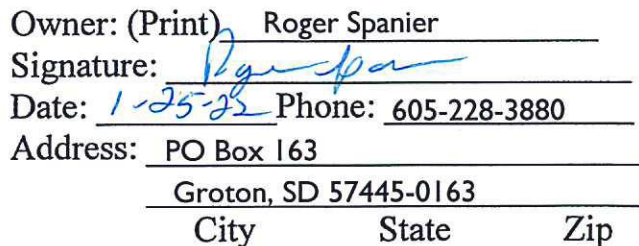 Owner: (Print) Roger Spanier
Signature:
Date: 1-25-22 Phone: 605-228-3880
Address: PO Box 163
Groton, SD 57445-0163
City State Zip